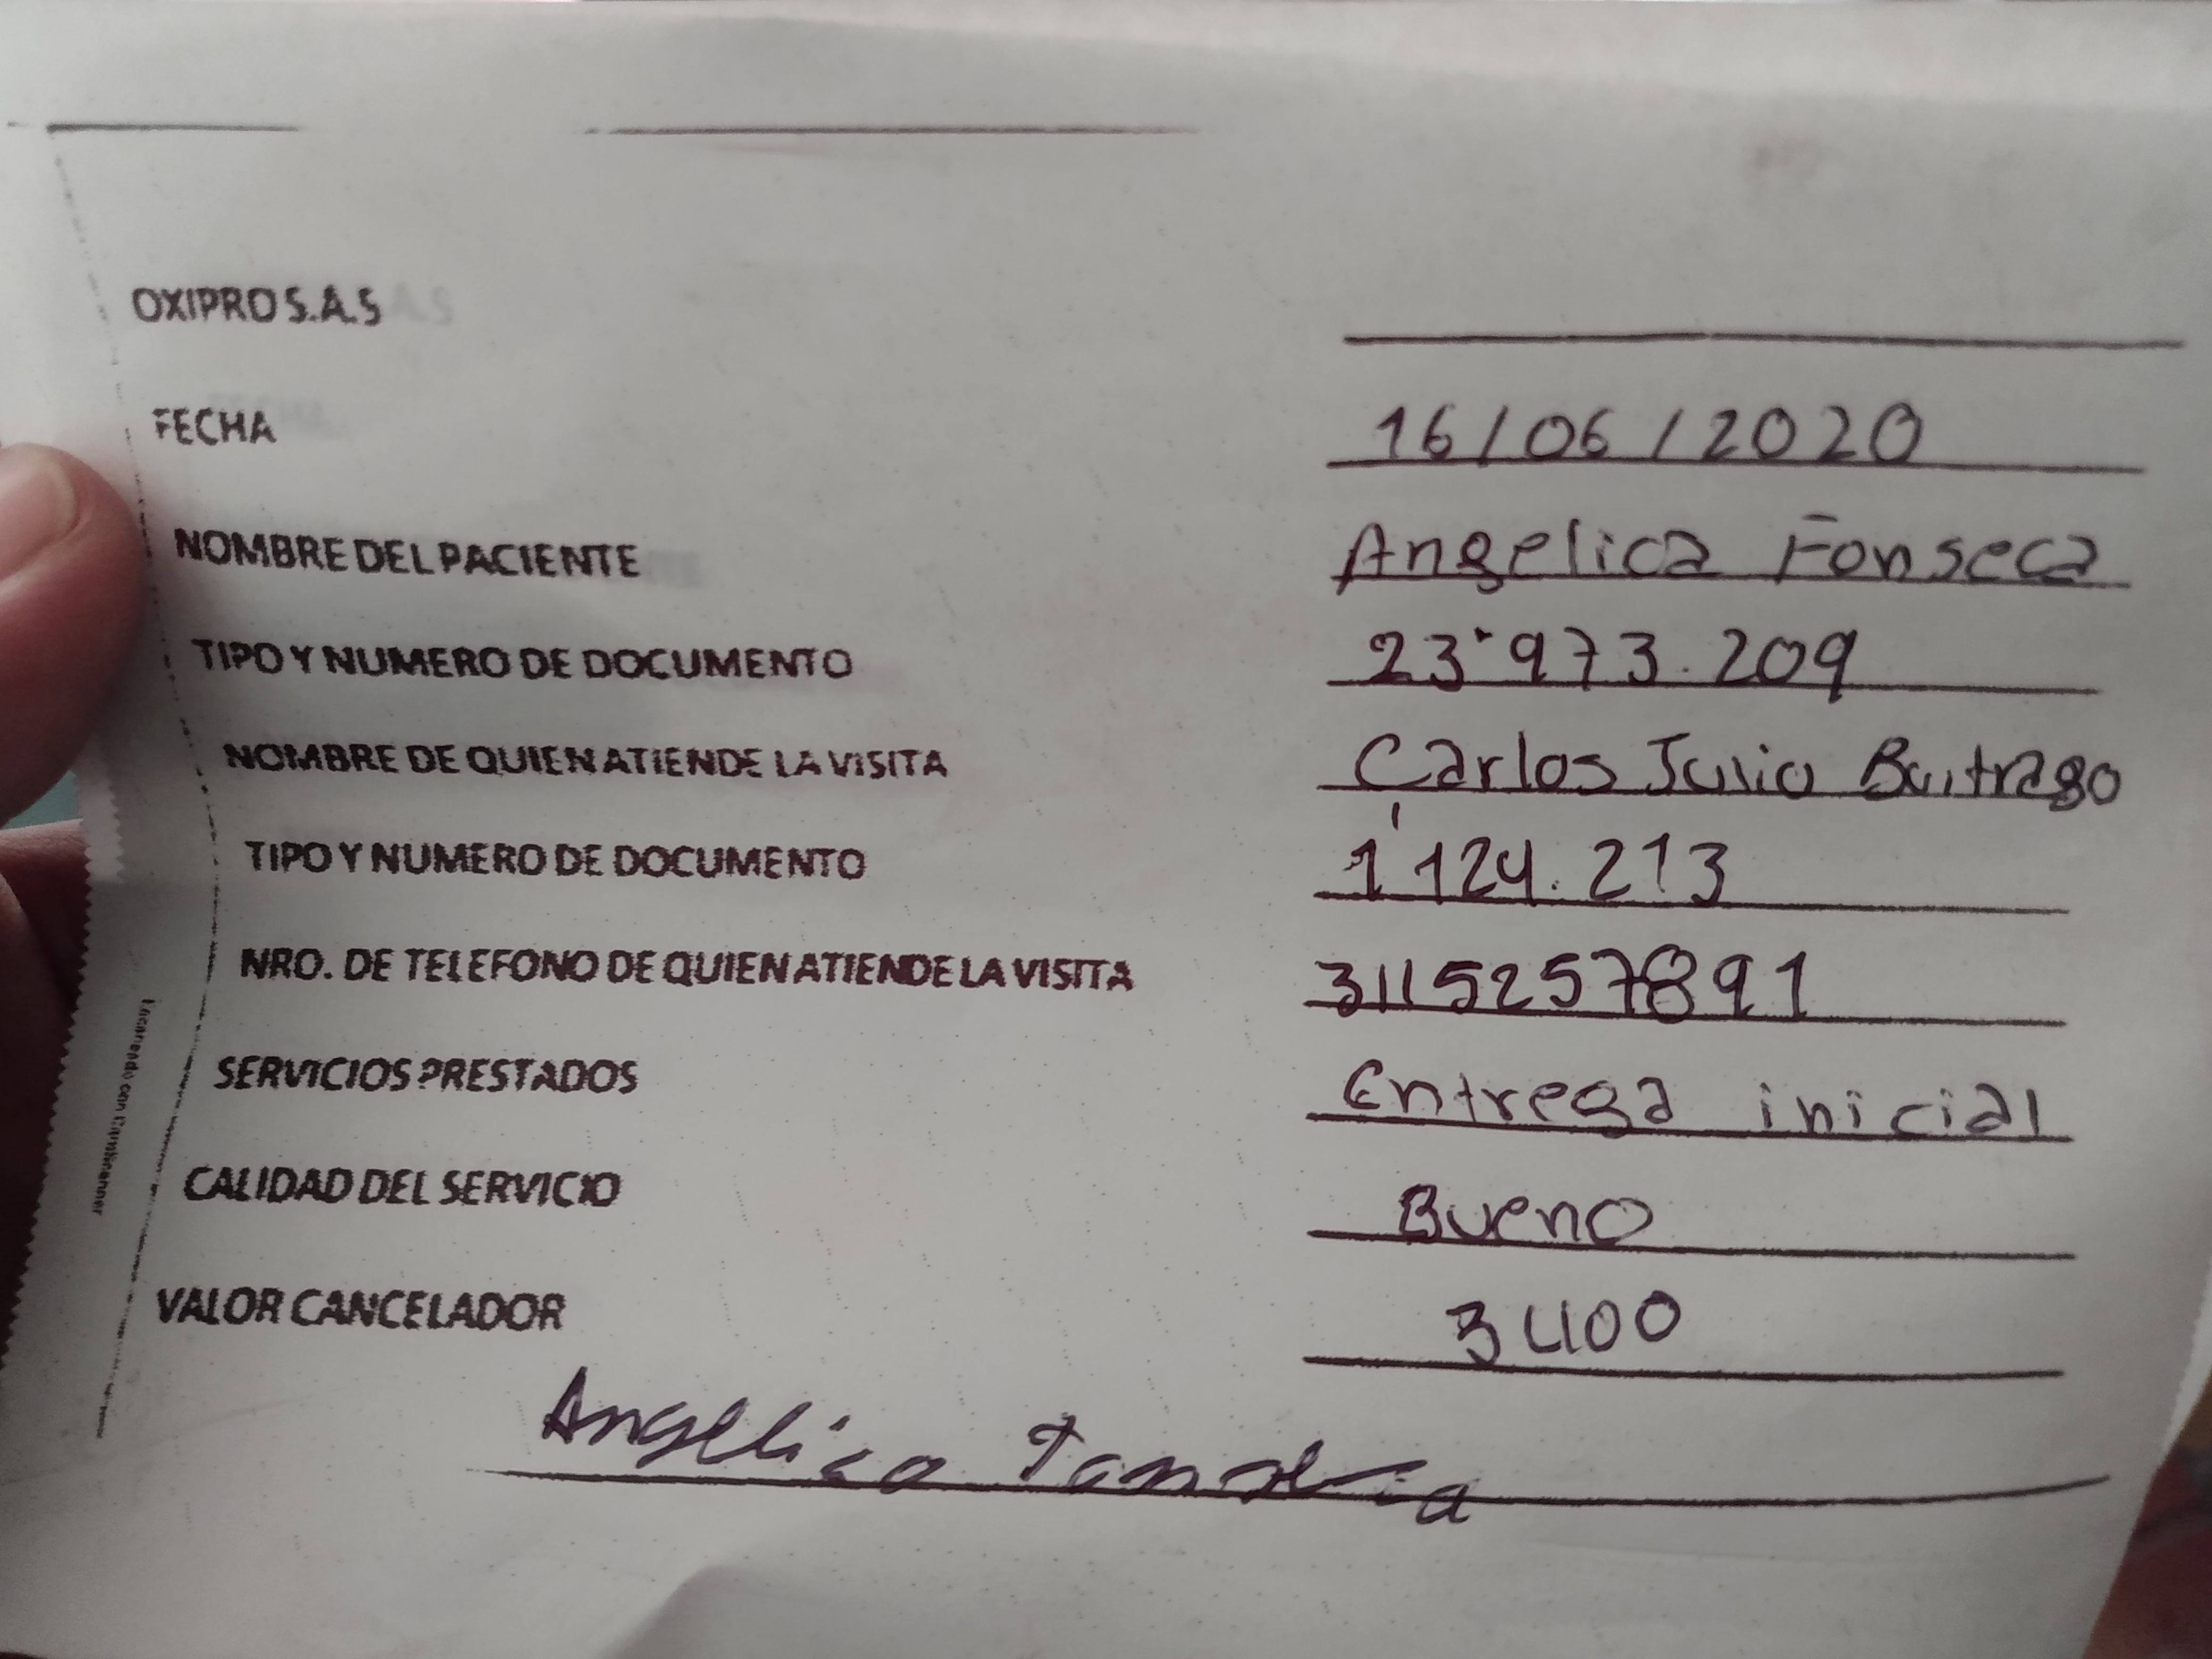 OXIPRO S.A.S
FECHA 16/06/2020
NOMBRE DEL PACIENTE Angelica Fonseca
TIPO Y NUMERO DE DOCUMENTO 23'973.209
NOMBRE DE QUIEN ATIENDE LA VISITA Carlos Julio Buitrago
TIPO Y NUMERO DE DOCUMENTO 1'124.213
NRO. DE TELEFONO DE QUIEN ATIENDE LA VISITA 3115257891
SERVICIOS PRESTADOS Entrega inicial
CALIDAD DEL SERVICIO Bueno
VALOR CANCELADOR 3400
Angelica
Escaneado con CamScanner